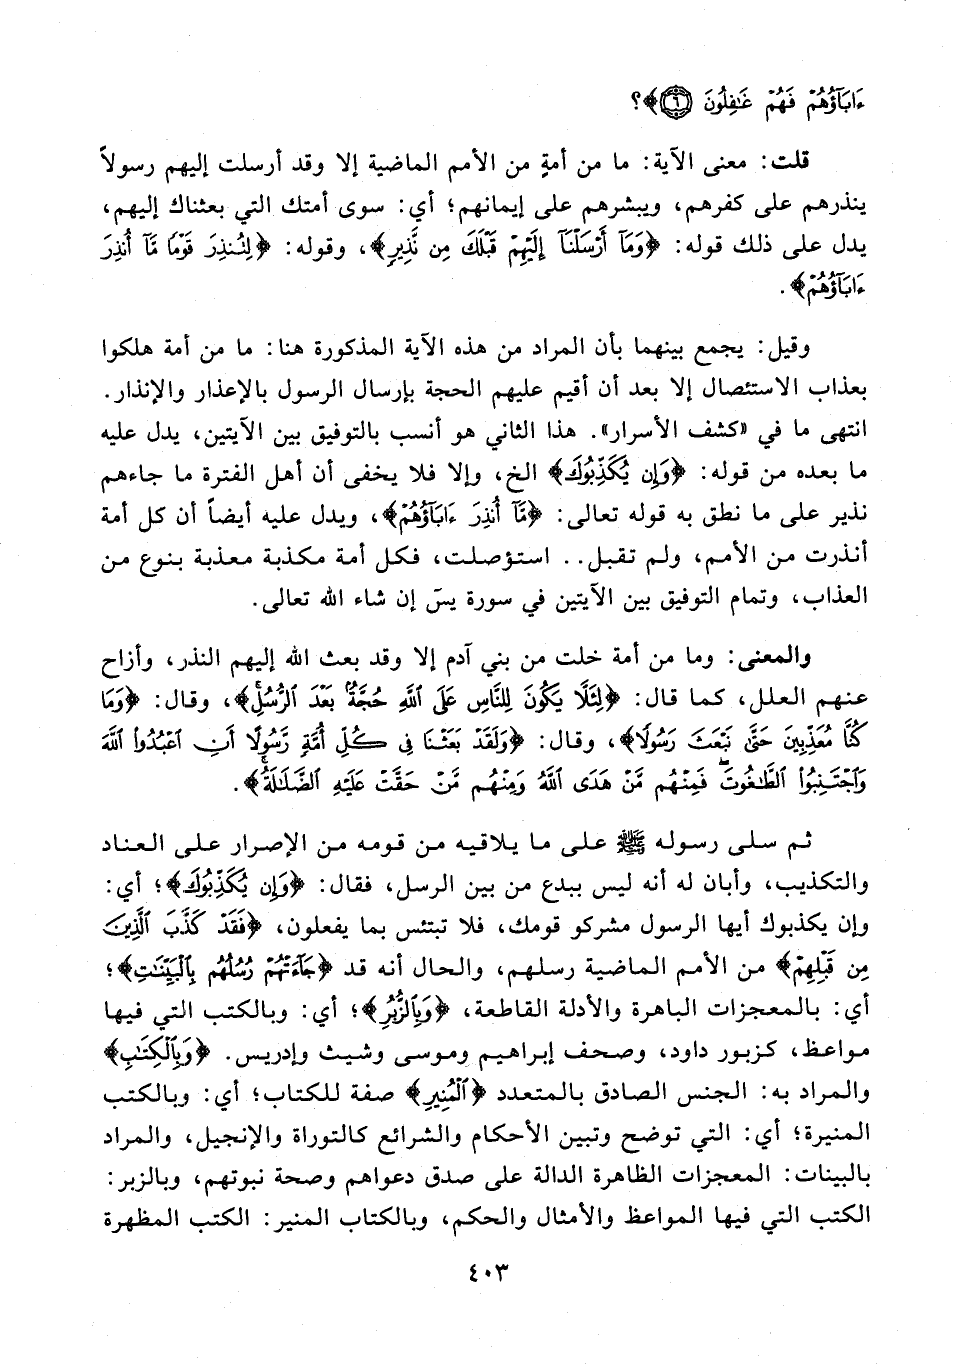 ءَابَآؤُهُمْ فَهُمْ غَٰفِلُونَ ٦﴾؟
قلت: معنى الآية: ما من أمةٍ من الأمم الماضية إلا وقد أرسلت إليهم رسولاً
ينذرهم على كفرهم، ويبشرهم على إيمانهم؛ أي: سوى أمتك التي بعثناك إليهم،
يدل على ذلك قوله: ﴿وَمَآ أَرْسَلْنَآ إِلَيْهِمْ قَبْلَكَ مِن نَّذِيرٍ﴾، وقوله: ﴿لِتُنذِرَ قَوْمًا مَّآ أُنذِرَ
ءَابَآؤُهُمْ﴾.
وقيل: يجمع بينهما بأن المراد من هذه الآية المذكورة هنا: ما من أمة هلكوا
بعذاب الاستئصال إلا بعد أن أقيم عليهم الحجة بإرسال الرسول بالإعذار والإنذار.
انتهى ما في «كشف الأسرار». هذا الثاني هو أنسب بالتوفيق بين الآيتين، يدل عليه
ما بعده من قوله: ﴿وَإِن يُكَذِّبُوكَ﴾ الخ، وإلا فلا يخفى أن أهل الفترة ما جاءهم
نذير على ما نطق به قوله تعالى: ﴿مَّآ أُنذِرَ ءَابَآؤُهُمْ﴾، ويدل عليه أيضاً أن كل أمة
أنذرت من الأمم، ولم تقبل.. استؤصلت، فكل أمة مكذبة معذبة بنوع من
العذاب، وتمام التوفيق بين الآيتين في سورة يسَ إن شاء الله تعالى.
والمعنى: وما من أمة خلت من بني آدم إلا وقد بعث الله إليهم النذر، وأزاح
عنهم العلل، كما قال: ﴿لِئَلَّا يَكُونَ لِلنَّاسِ عَلَى ٱللَّهِ حُجَّةٌۢ بَعْدَ ٱلرُّسُلِۚ﴾، وقال: ﴿وَمَا
كُنَّا مُعَذِّبِينَ حَتَّىٰ نَبْعَثَ رَسُولًا﴾، وقال: ﴿وَلَقَدْ بَعَثْنَا فِى كُلِّ أُمَّةٍ رَّسُولًا أَنِ ٱعْبُدُوا۟ ٱللَّهَ
وَٱجْتَنِبُوا۟ ٱلطَّٰغُوتَۖ فَمِنْهُم مَّنْ هَدَى ٱللَّهُ وَمِنْهُم مَّنْ حَقَّتْ عَلَيْهِ ٱلضَّلَٰلَةُۚ﴾.
ثم سلى رسوله ﷺ على ما يلاقيه من قومه من الإصرار على العناد
والتكذيب، وأبان له أنه ليس ببدع من بين الرسل، فقال: ﴿وَإِن يُكَذِّبُوكَ﴾؛ أي:
وإن يكذبوك أيها الرسول مشركو قومك، فلا تبتئس بما يفعلون، ﴿فَقَدْ كَذَّبَ ٱلَّذِينَ
مِن قَبْلِهِمْ﴾ من الأمم الماضية رسلهم، والحال أنه قد ﴿جَآءَتْهُمْ رُسُلُهُم بِٱلْبَيِّنَٰتِ﴾؛
أي: بالمعجزات الباهرة والأدلة القاطعة، ﴿وَبِٱلزُّبُرِ﴾؛ أي: وبالكتب التي فيها
مواعظ، كزبور داود، وصحف إبراهيم وموسى وشيث وإدريس. ﴿وَبِٱلْكِتَٰبِ﴾
والمراد به: الجنس الصادق بالمتعدد ﴿ٱلْمُنِيرِ﴾ صفة للكتاب؛ أي: وبالكتب
المنيرة؛ أي: التي توضح وتبين الأحكام والشرائع كالتوراة والإنجيل، والمراد
بالبينات: المعجزات الظاهرة الدالة على صدق دعواهم وصحة نبوتهم، وبالزبر:
الكتب التي فيها المواعظ والأمثال والحكم، وبالكتاب المنير: الكتب المظهرة
٤٠٣